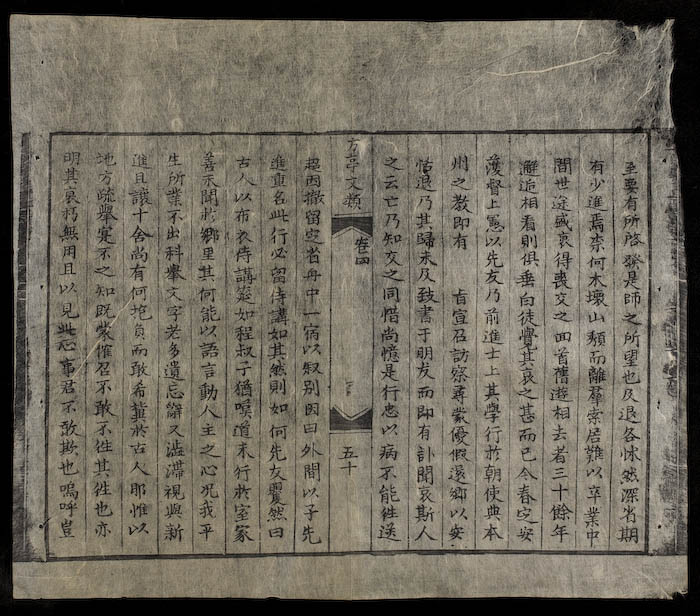 至要有所啓發是師之所望也及退各怵然深省期
有少進焉柰何木壞山頹而離羣索居難以卒業中
間世途盛衰得喪交之回首舊遊相去者三十餘年
邂逅相看則俱垂白徒覺其衰之甚而已今春定安
護督上憲以先友乃前進士上其學行於朝使典本
州之教即有 旨宣召訪察尋蒙優假還鄉以安
恬退乃其歸未及致書于朋友而即有訃聞哀斯人
之云亡乃知交之同惜尚憶是行忠以病不能往送
方亭文類 卷四 五十
趨因撤留定省舟中一宿以叙别因曰外間以子先
進重名此行必留侍講如其然則如何先友矍然曰
古人以布衣侍講筵如程叔子猶嘆道未行於室家
善未聞於鄉里其何能以語言動人主之心況我平
生所業不出科舉文字老多遺忘辭又澁滯視與新
進且讓十舍尚有何抱負而敢希於古人耶惟以
地方疏舉寔不之知既蒙催召不敢不往其往也亦
明其衰朽無用且以見此心事君不敢欺也嗚呼豈